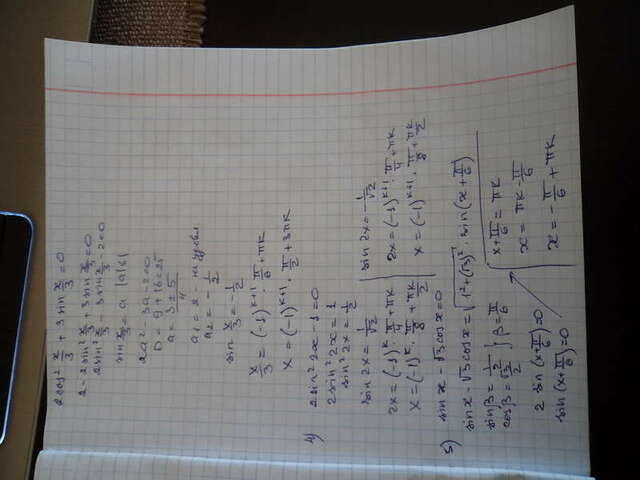 2cos² x/3 + 3 sin x/3 = 0
2 - 2sin² x/3 + 3 sin x/3 = 0
2sin² x/3 - 3 sin x/3 - 2 = 0
sin x/3 = a |a|≤1
2a² - 3a - 2 = 0
D = 9 + 16 = 25
a = 3 ± 5 / 4
a₁ = 2 - не удовл
a₂ = - 1/2
sin x/3 = - 1/2
x/3 = (-1)ᵏ⁺¹ · π/6 + πk
x = (-1)ᵏ⁺¹ · π/2 + 3πk
4) 2sin² 2x - 1 = 0
2sin² 2x = 1
sin² 2x = 1/2
sin 2x = 1/√2
2x = (-1)ᵏ · π/4 + πk
x = (-1)ᵏ · π/8 + πk/2
sin 2x = - 1/√2
2x = (-1)ᵏ⁺¹ · π/4 + πk
x = (-1)ᵏ⁺¹ · π/8 + πk/2
5) sin x - √3 cos x = 0
sin x - √3 cos x = √(1² + (√3)²) · sin (x + π/6)
sin β = 1/2
cos β = √3/2 } β = π/6
2 sin (x + π/6) = 0
sin (x + π/6) = 0
x + π/6 = πk
x = πk - π/6
x = - π/6 + πk